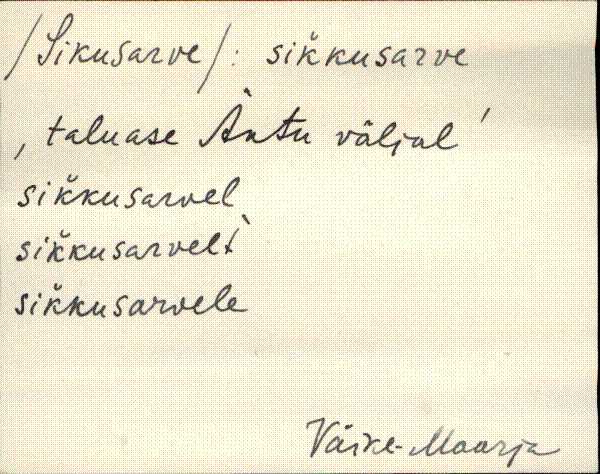 /Sikusarve/: sik̆kusarve
, taluase Àntu väljal '
sik̆kusarvel
sik̆kusarvelt̀
sik̆kusarvele
Väike-Maarja